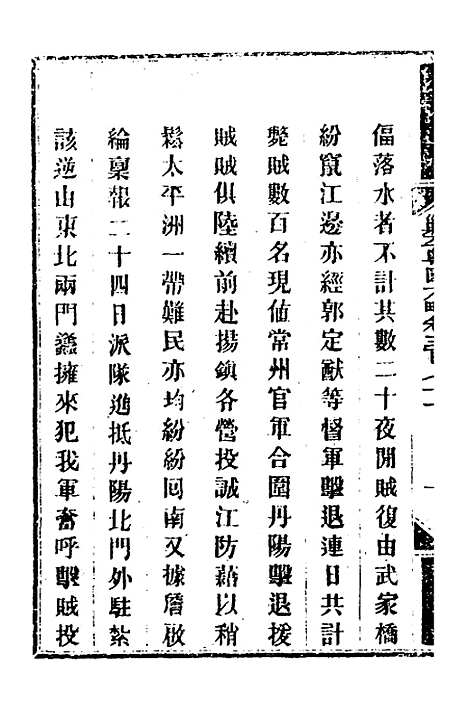 偪落水者不計其數二十夜間賊復由武家橋
紛竄江邊亦經郭定猷等督軍擊退連日共計
斃賊數百名現値常州官軍合圍丹陽擊退援
賊賊俱陸續前赴揚鎭各營投誠江防藉以稍
鬆太平洲一帶難民亦均紛紛囘南又據詹啟
綸稟報二十四日派隊進抵丹陽北門外駐紮
該逆由東北兩門蠭擁來犯我軍奮呼擊賊投